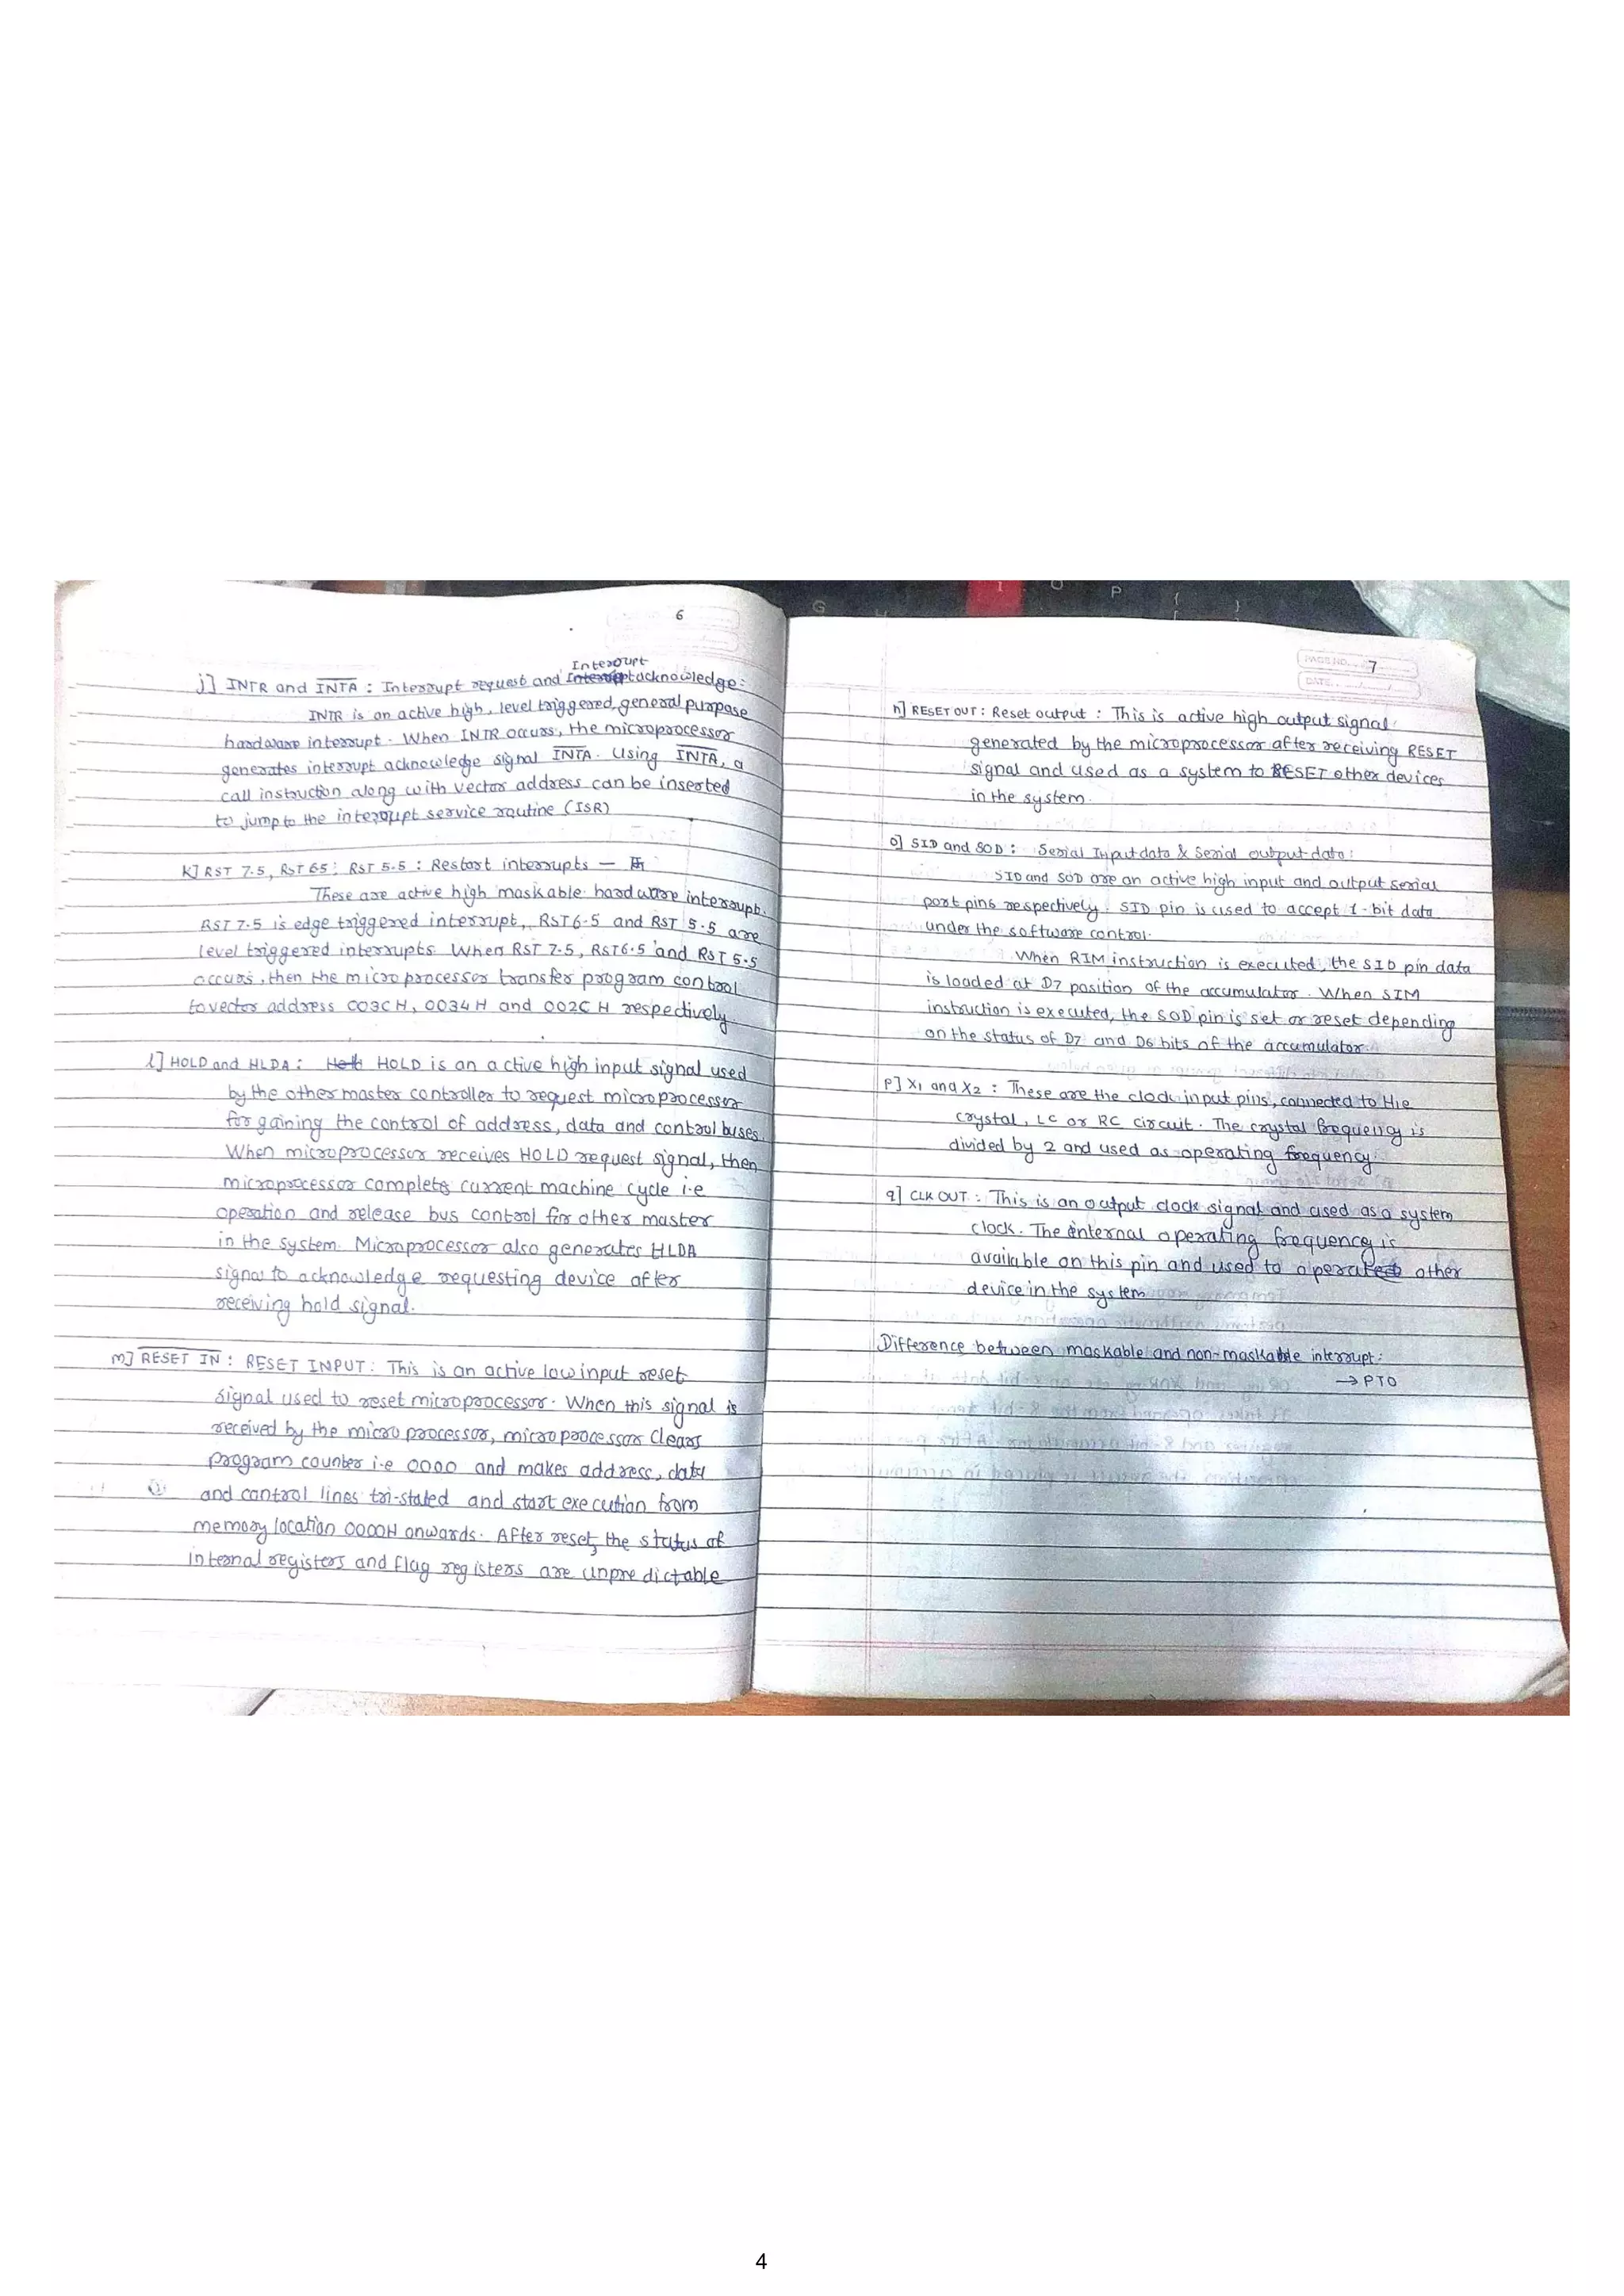 6
j] INTR and INTA : Interrupt request and Interrupt acknowledge:
INTR is an active high, level triggered, general purpose
hardware interrupt. When INTR occurs, the microprocessor
generates interrupt acknowledge signal INTA. Using INTA, a
call instruction along with vector address can be inserted
to jump to the interrupt service routine (ISR)
k] RST 7.5, RST 65 : RST 5.5 : Restart interrupts —
These are active high maskable hardware interrupt.
RST 7.5 is edge triggered interrupt, RST 6.5 and RST 5.5 are
level triggered interrupts. When RST 7.5, RST 6.5 and RST 5.5
occurs, then the microprocessor transfer program control
to vector address 003C H, 0034 H and 002C H respectively
l] HOLD and HLDA : HOLD is an active high input signal used
by the other master controller to request microprocessor
for gaining the control of address, data and control buses.
When microprocessor receives HOLD request signal, then
microprocessor completes current machine cycle i.e
operation and release bus control for other master
in the system. Microprocessor also generates HLDA
signal to acknowledge requesting device after
receiving hold signal.
m] RESET IN : RESET INPUT : This is an active low input reset
signal used to reset microprocessor. When this signal is
received by the microprocessor, microprocessor clears
program counter i.e 0000 and makes address, data
and control lines tri-stated and start execution from
memory location 0000H onwards. After reset, the status of
internal registers and flag registers are unpredictable
PAGE NO. 7
DATE
n] RESET OUT : Reset output : This is active high output signal
generated by the microprocessor after receiving RESET
signal and used as a system to RESET other devices
in the system.
o] SID and SOD : Serial Input data & Serial output data :
SID and SOD are an active high input and output serial
port pins respectively. SID pin is used to accept 1-bit data
under the software control.
When RIM instruction is executed, the SID pin data
is loaded at D7 position of the accumulator. When SIM
instruction is executed, the SOD pin is set or reset depending
on the status of D7 and D6 bits of the accumulator.
P] X1 and X2 : These are the clock input pins, connected to the
crystal, LC or RC circuit. The crystal frequency is
divided by 2 and used as operating frequency.
q] CLK OUT : This is an output clock signal and used as a system
clock. The internal operating frequency is
available on this pin and used to operate other
device in the system
Difference between maskable and non-maskable interrupt :
→ PTO
4